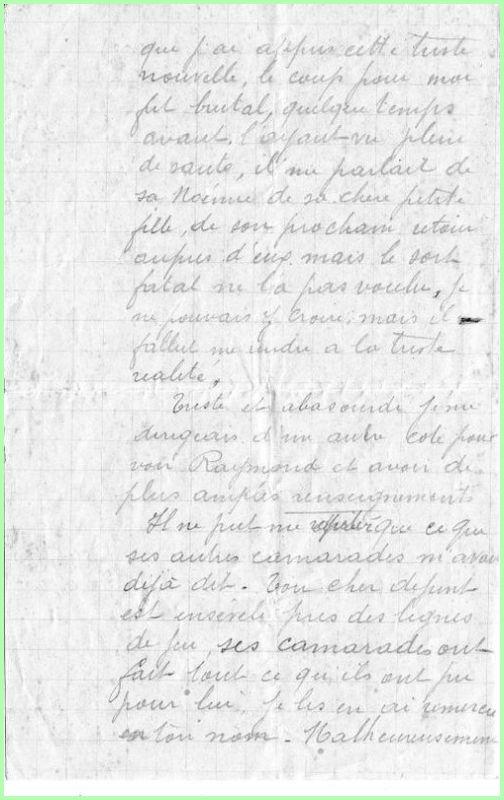 que j'ai appris cette triste
nouvelle, le coup pour moi
fut brutal, quelque temps
avant, l'ayant vu plein
de santé, il me parlait de
sa Noémie de sa chère petite
fille, de son prochain retour
auprès d'eux. mais le sort
fatal ne la pas voulu, je
ne pouvais y croire, mais il
fallut me rendre a la triste
realité,
Triste et abasourdi je me
dirigeais d'un autre coté pour
voir Raymond et avoir de
plus amples renseignements
Il ne put me répéter que ce que
ses autres camarades m'avai
déjà dit - Ton cher défunt
est enseveli près des lignes
de feu, ses camarades ont
fait tout ce qu'ils ont pu
pour lui, Je les en ai remercié
en ton nom - Malheureuseme